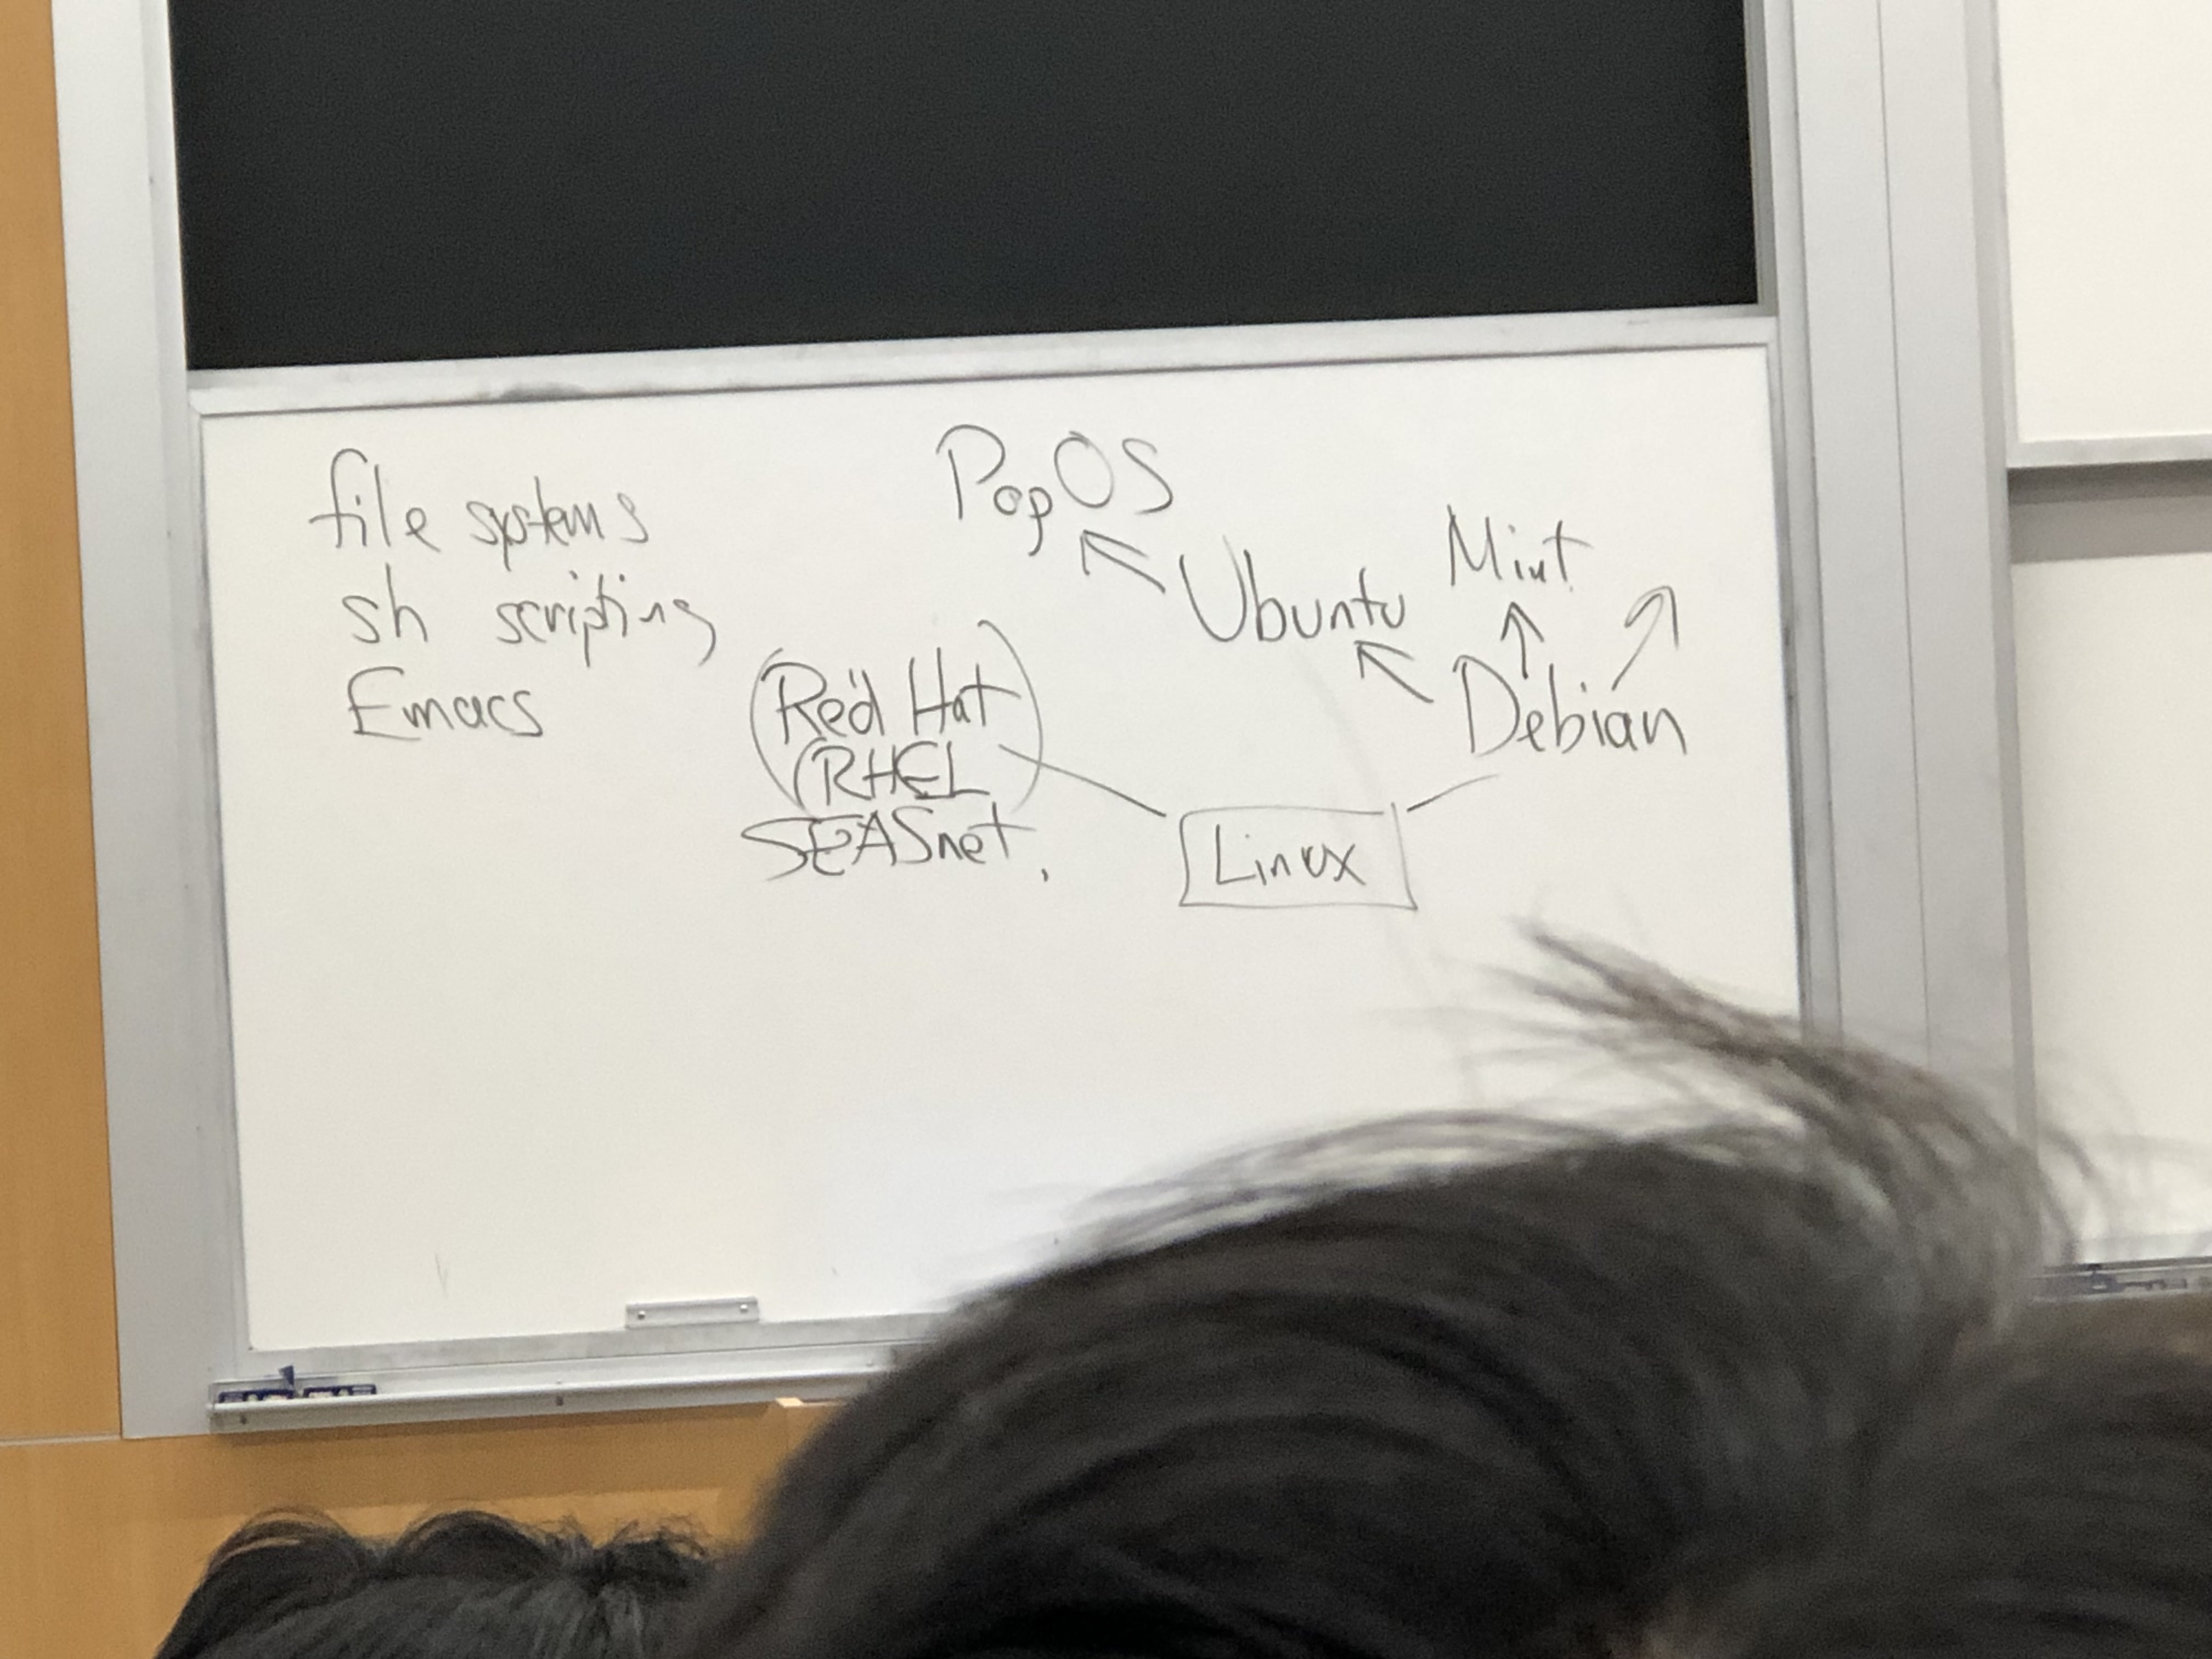 file systems
sh scripting
Emacs
PopOS
Ubuntu
Mint
Debian
(Red Hat)
(RHEL
SEASnet.
Linux